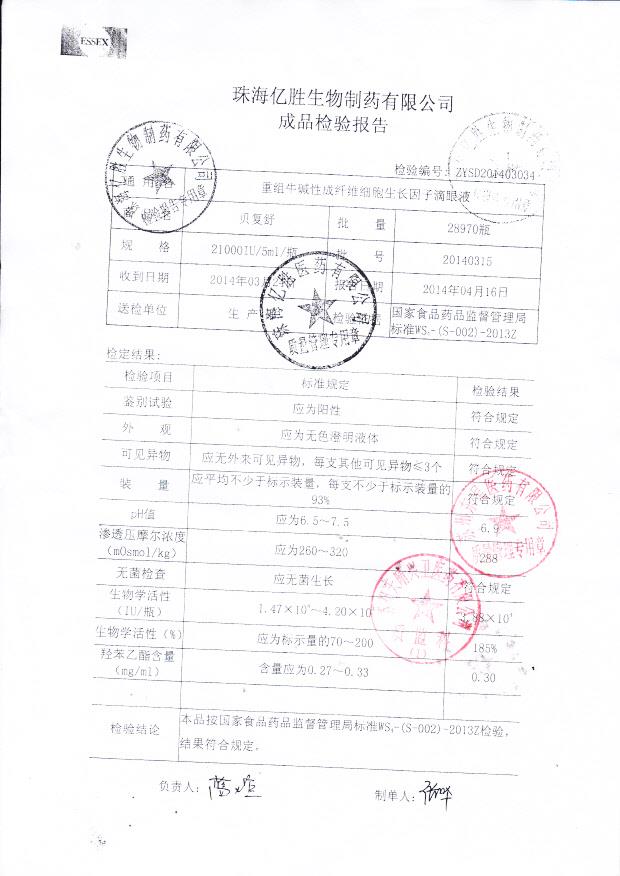 ESSEX
珠海亿胜生物制药有限公司
成品检验报告
检验编号: ZYSD201403034
通用名 重组牛碱性成纤维细胞生长因子滴眼液
名 贝复舒 批 量 28970瓶
规 格 21000IU/5ml/瓶 批 号 20140315
收到日期 2014年03月 报告日期 2014年04月16日
送检单位 生产 检验 国家食品药品监督管理局
标准WS₁-(S-002)-2013Z
检定结果:
检验项目 标准规定 检验结果
鉴别试验 应为阳性 符合规定
外 观 应为无色澄明液体 符合规定
可见异物 应无外来可见异物，每支其他可见异物≤3个 符合规定
装 量 应平均不少于标示装量，每支不少于标示装量的
93% 符合规定
pH值 应为6.5～7.5 6.9
渗透压摩尔浓度
(mOsmol/kg) 应为260～320 288
无菌检查 应无菌生长 符合规定
生物学活性
(IU/瓶) 1.47×10⁴～4.20×10
生物学活性(%) 应为标示量的70～200 185%
羟苯乙酯含量
(mg/ml) 含量应为0.27～0.33 0.30
检验结论 本品按国家食品药品监督管理局标准WS₁-(S-002)-2013Z检验，
结果符合规定。
负责人: 制单人:
珠海亿胜生物制药有限公司
检验报告专用章
珠海亿胜医药有限公司
质量管理专用章
医药有限公司
质量管理专用章